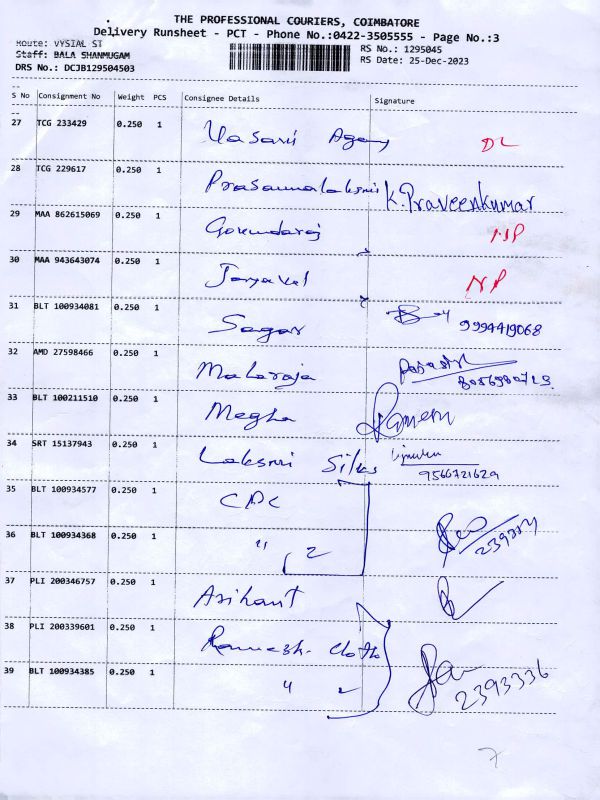 THE PROFESSIONAL COURIERS, COIMBATORE
Delivery Runsheet - PCT - Phone No.:0422-3505555 - Page No.:3
Route: VYSIAL ST RS No.: 1295045
Staff: BALA SHANMUGAM RS Date: 25-Dec-2023
DRS No.: DCJB129504503
S No Consignment No Weight PCS Consignee Details Signature
27 TCG 233429 0.250 1 Vasavi Agency DL
28 TCG 229617 0.250 1 Prasannalaksmi K. Praveenkumar
29 MAA 862615069 0.250 1 Govindaraj NP
30 MAA 943643074 0.250 1 NP
31 BLT 100934081 0.250 1 Sagar 9994419068
32 AMD 27598466 0.250 1 Maharaja
33 BLT 100211510 0.250 1 Megha
34 SRT 15137943 0.250 1 Laksmi Silks 9566721629
35 BLT 100934577 0.250 1 CPC
36 BLT 100934368 0.250 1 " 2
37 PLI 200346757 0.250 1 Arihant
38 PLI 200339601 0.250 1 Ramesh Cloth
39 BLT 100934385 0.250 1 " 2 2393336
7